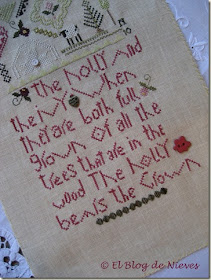 the holly and
the ivy when
they are both full
grown of all the
trees that are in the
wood the holly
bears the crown
© El Blog de Nieves